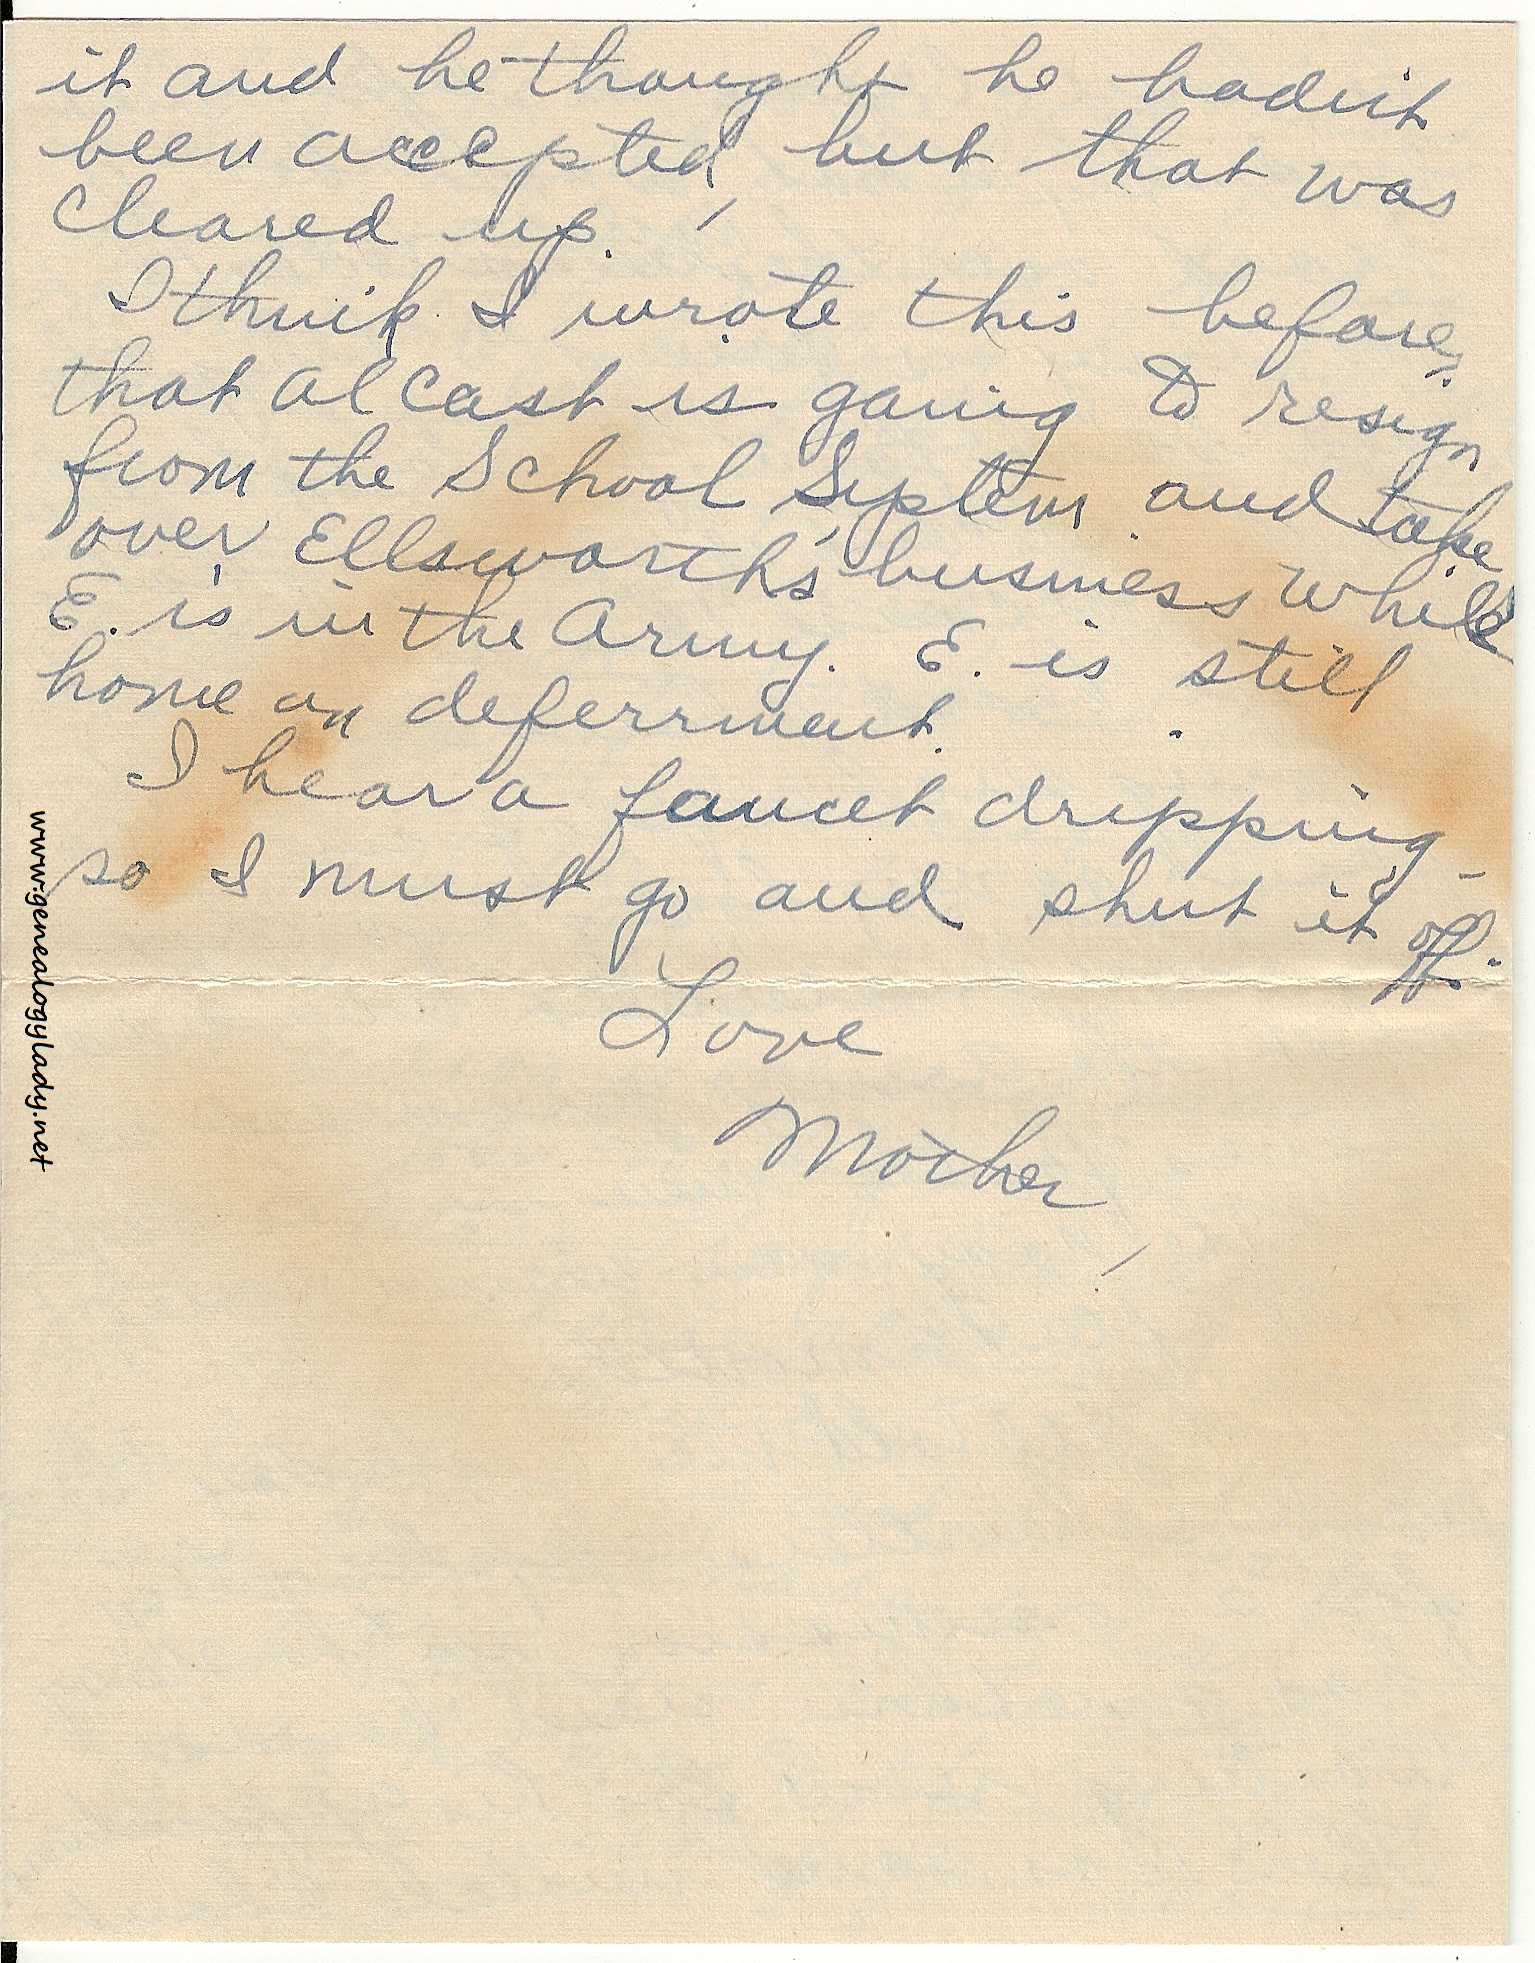 it and he thought he hadn't
been accepted, but that was
cleared up.
I think I wrote this before,
that Al Cast is going to resign
from the School System and take
over Ellsworth's business while
E. is in the Army. E. is still
home on deferrment.
I hear a faucet dripping -
so I must go and shut it off.
Love
Mother,
www.genealogylady.net